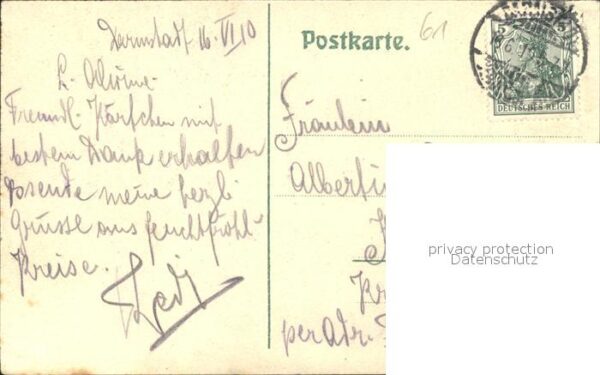 Darmstadt 16. VI 10
L. Alwine.
Freundl. Kärtchen mit
bestem Dank erhalten
sende meine herzl.
Grüsse aus feuchtfröhl.
Kreise.
Postkarte.
61
DEUTSCHES REICH
Fräulein
Alberti
per Adr.
privacy protection
Datenschutz